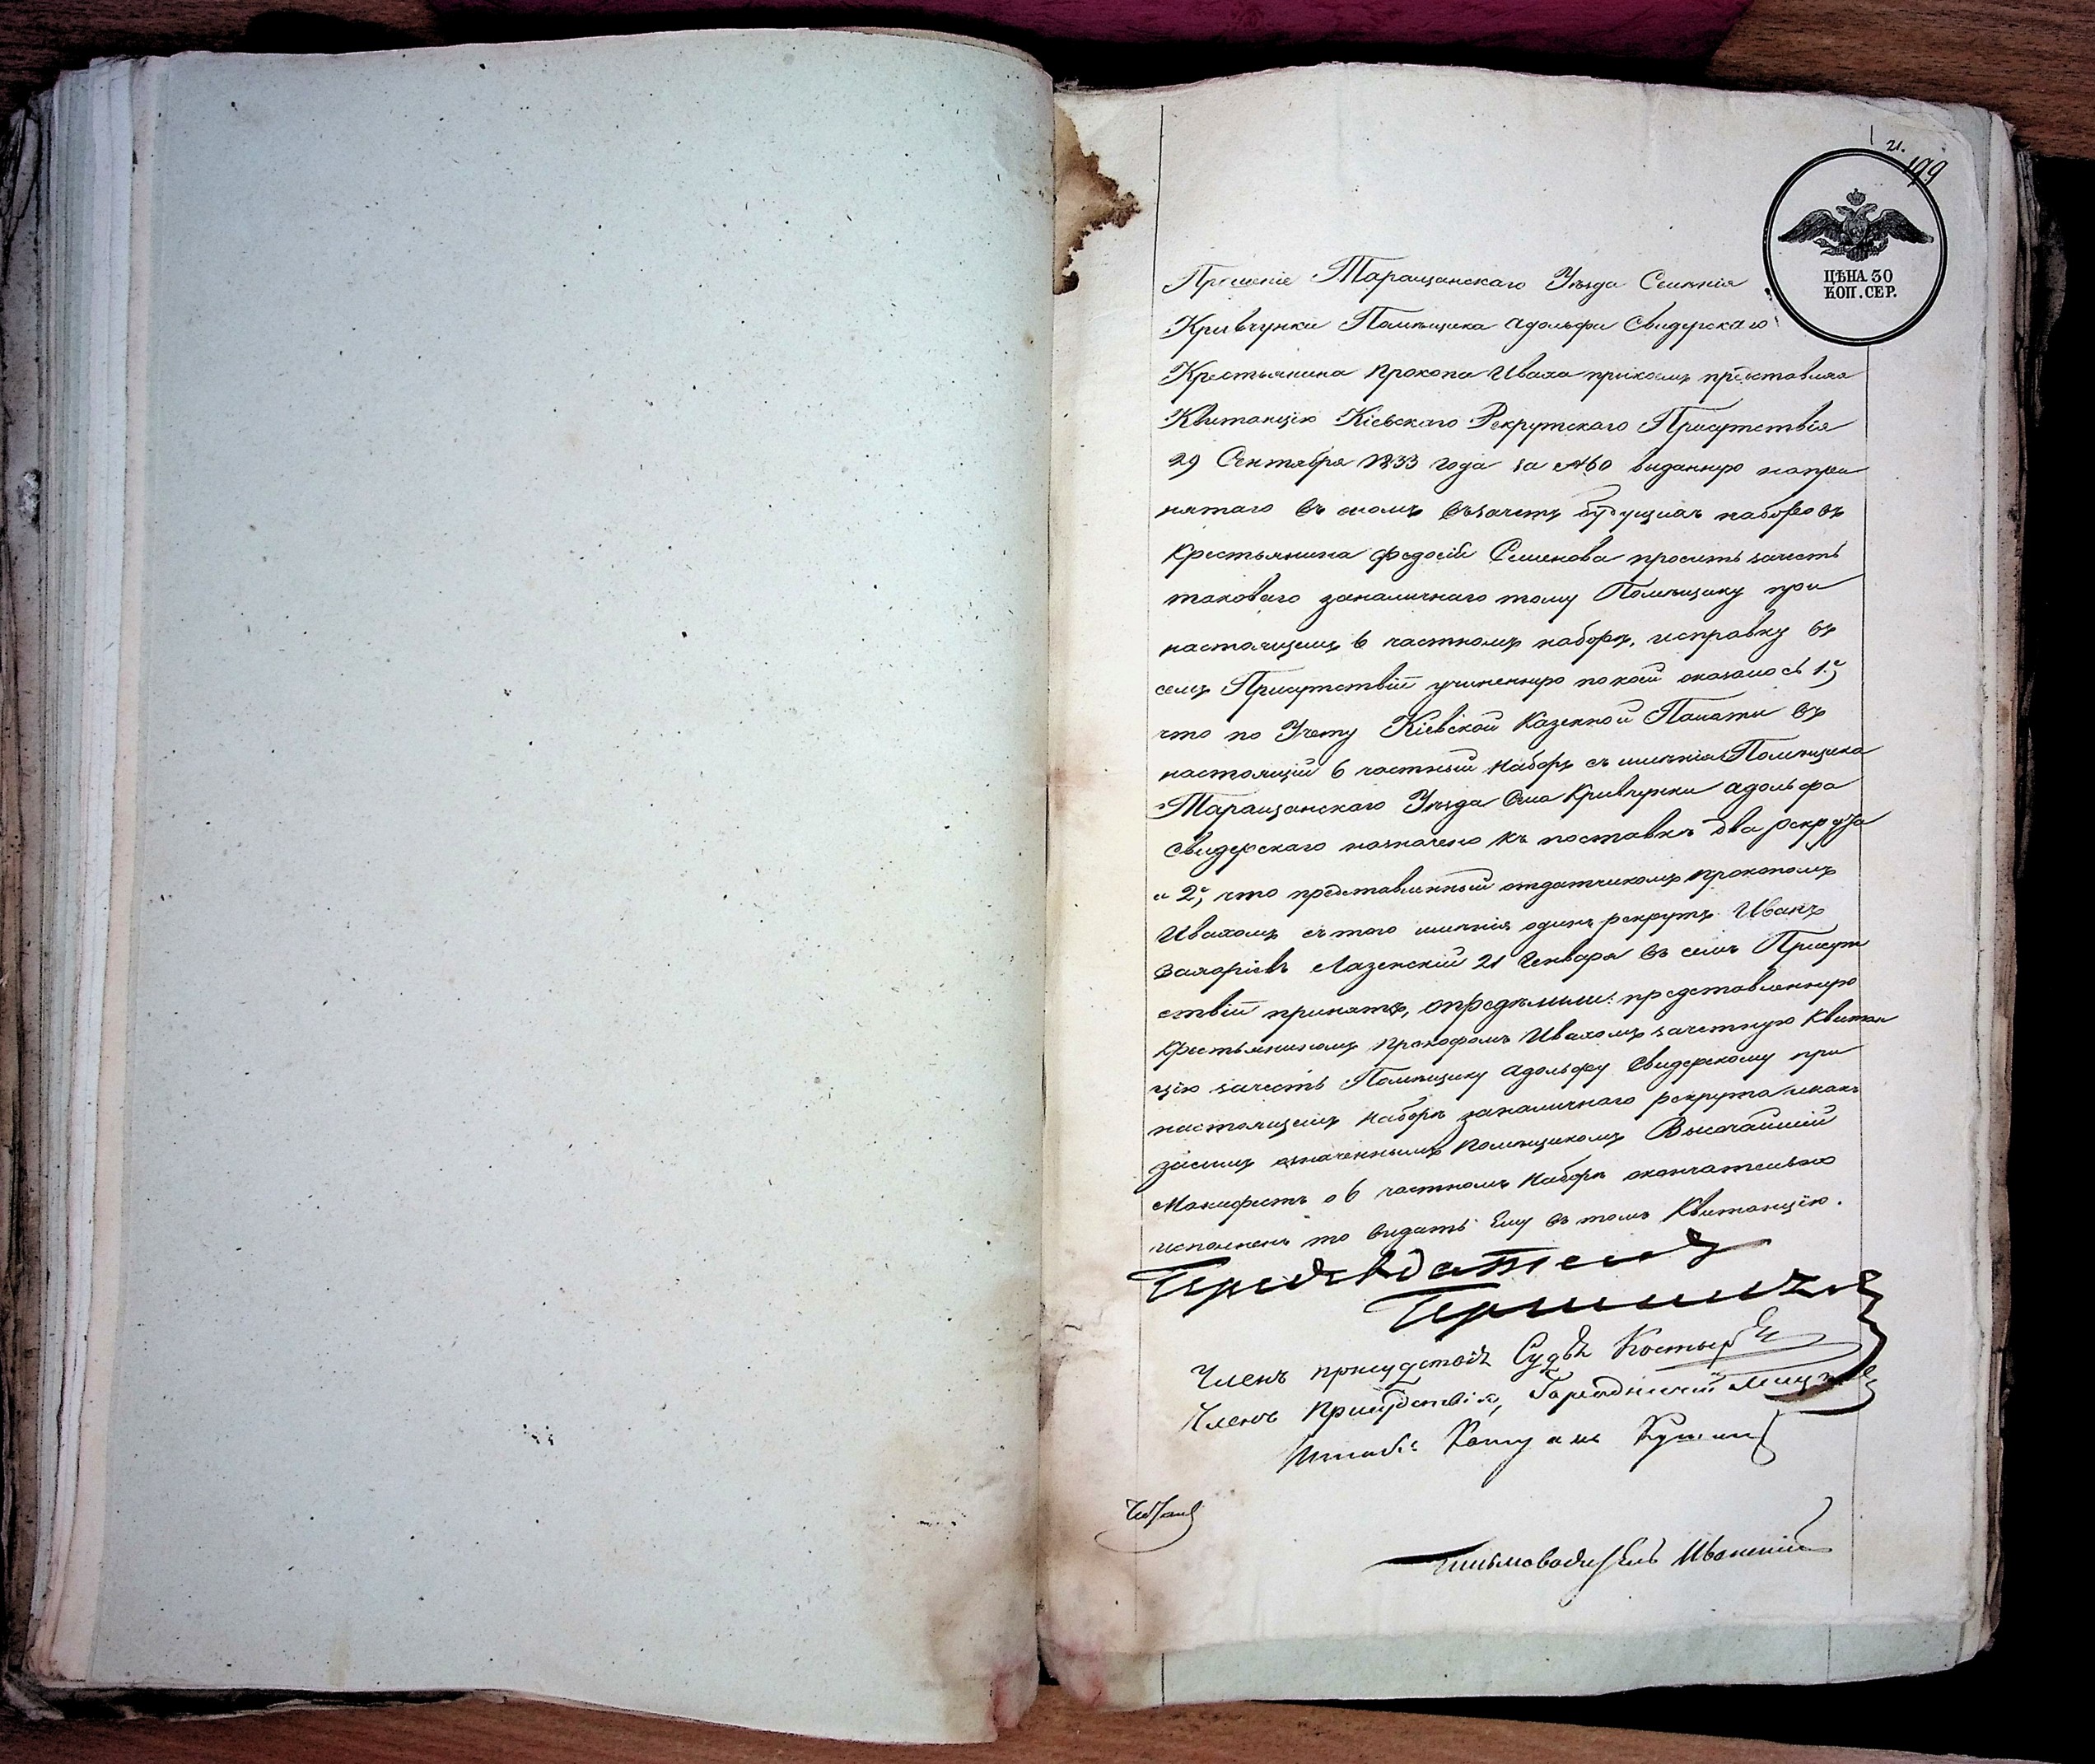 21.
199
ЦѢНА 30
КОП. СЕР.
Прошеніе Таращанскаго Уѣзда Селенія
Кривчунки Помѣщика Адольфа Свидерскаго
Крестьянина Прокопа Иваха при коемъ представляя
Квитанцію Кіевскаго Рекрутскаго Присутствія
29 Сентября 1833 года за № 60 выданную на при
нятаго въ ономъ въ зачетъ будущихъ наборовъ
Крестьянина Федосій Семенова проситъ зачесть
таковаго за наличнаго тому Помѣщику при
настоящемъ 6 частномъ наборѣ, и справку въ
семъ Присутствіи учиненную по коей оказалось 1е,
что по Учету Кіевской Казенной Палаты въ
настоящій 6 частный наборъ съ имѣнія Помѣщика
Таращанскаго Уѣзда Села Кривчунки Адольфа
Свидерскаго назначено къ поставкѣ два рекрута
и 2е, что представленный отдатчикомъ Прокопомъ
Ивахомъ съ того имѣнія одинъ рекрутъ Иванъ
Лазенскій 21 Генваря въ семъ Присут
ствіи принятъ, опредѣлили: представленную
Крестьяниномъ Прокофомъ Ивахомъ зачетную Квитан
цію зачесть Помѣщику Адольфу Свидерскому при
настоящемъ наборѣ за наличнаго рекрута и какъ
засимъ означеннымъ Помѣщикомъ Высочайшій
Манифестъ о 6 частномъ наборѣ окончательно
исполненъ то выдать Ему въ томъ Квитанцію.
Предсѣдатель
Членъ присудствія Судья
Членъ Присудствія, Городничій
Штабъ
Читалъ
Письмоводитель Иванскій